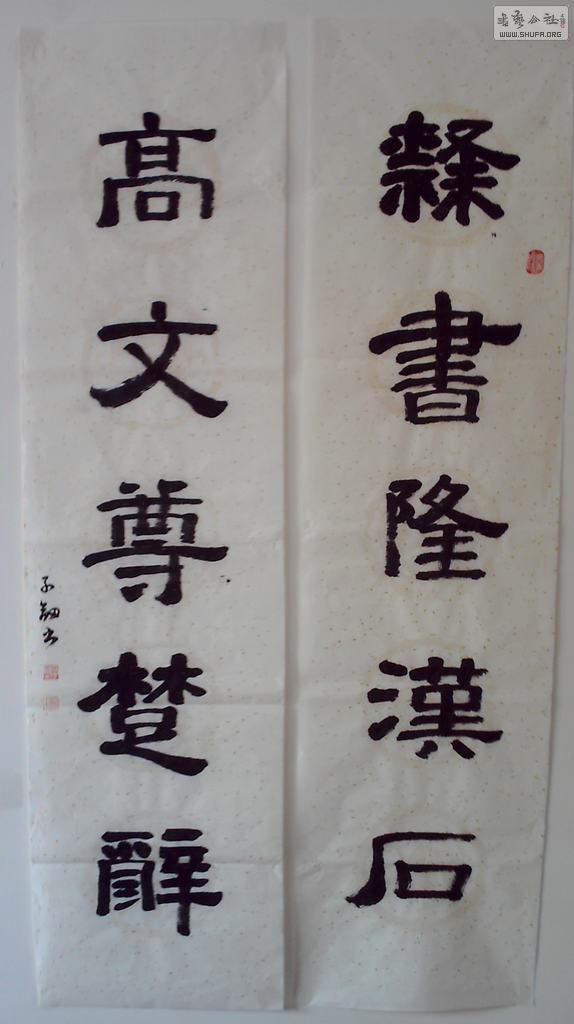 隸書隆漢石
高文尊楚辭
子劔书
書藝公社
WWW.SHUFA.ORG